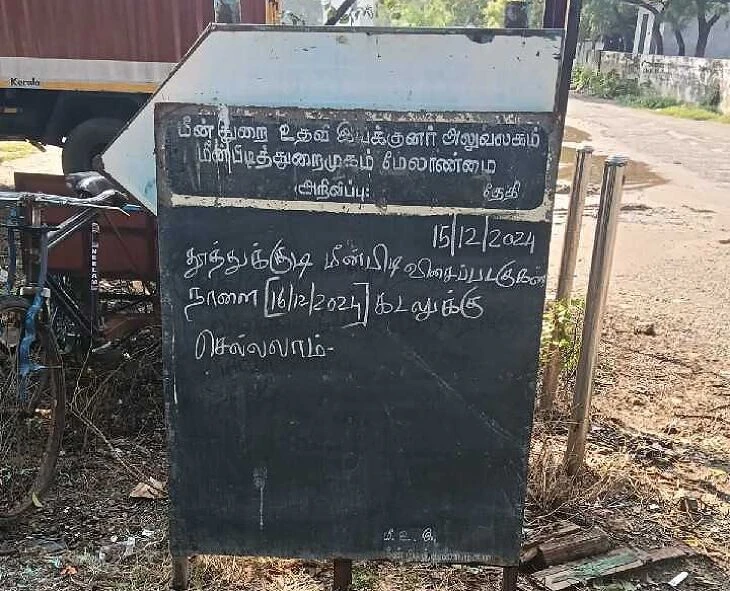 Kerala
மீன்துறை உதவி இயக்குனர் அலுவலகம்
மீன்பிடித்துறைமுகம் மேலாண்மை
அறிவிப்பு: தேதி
15/12/2024
தூத்துக்குடி மீன்பிடி விசைப்படகுகள்
நாளை [16/12/2024] கடலுக்கு
செல்லலாம்-
மீ.உ.இ,
NEELAM